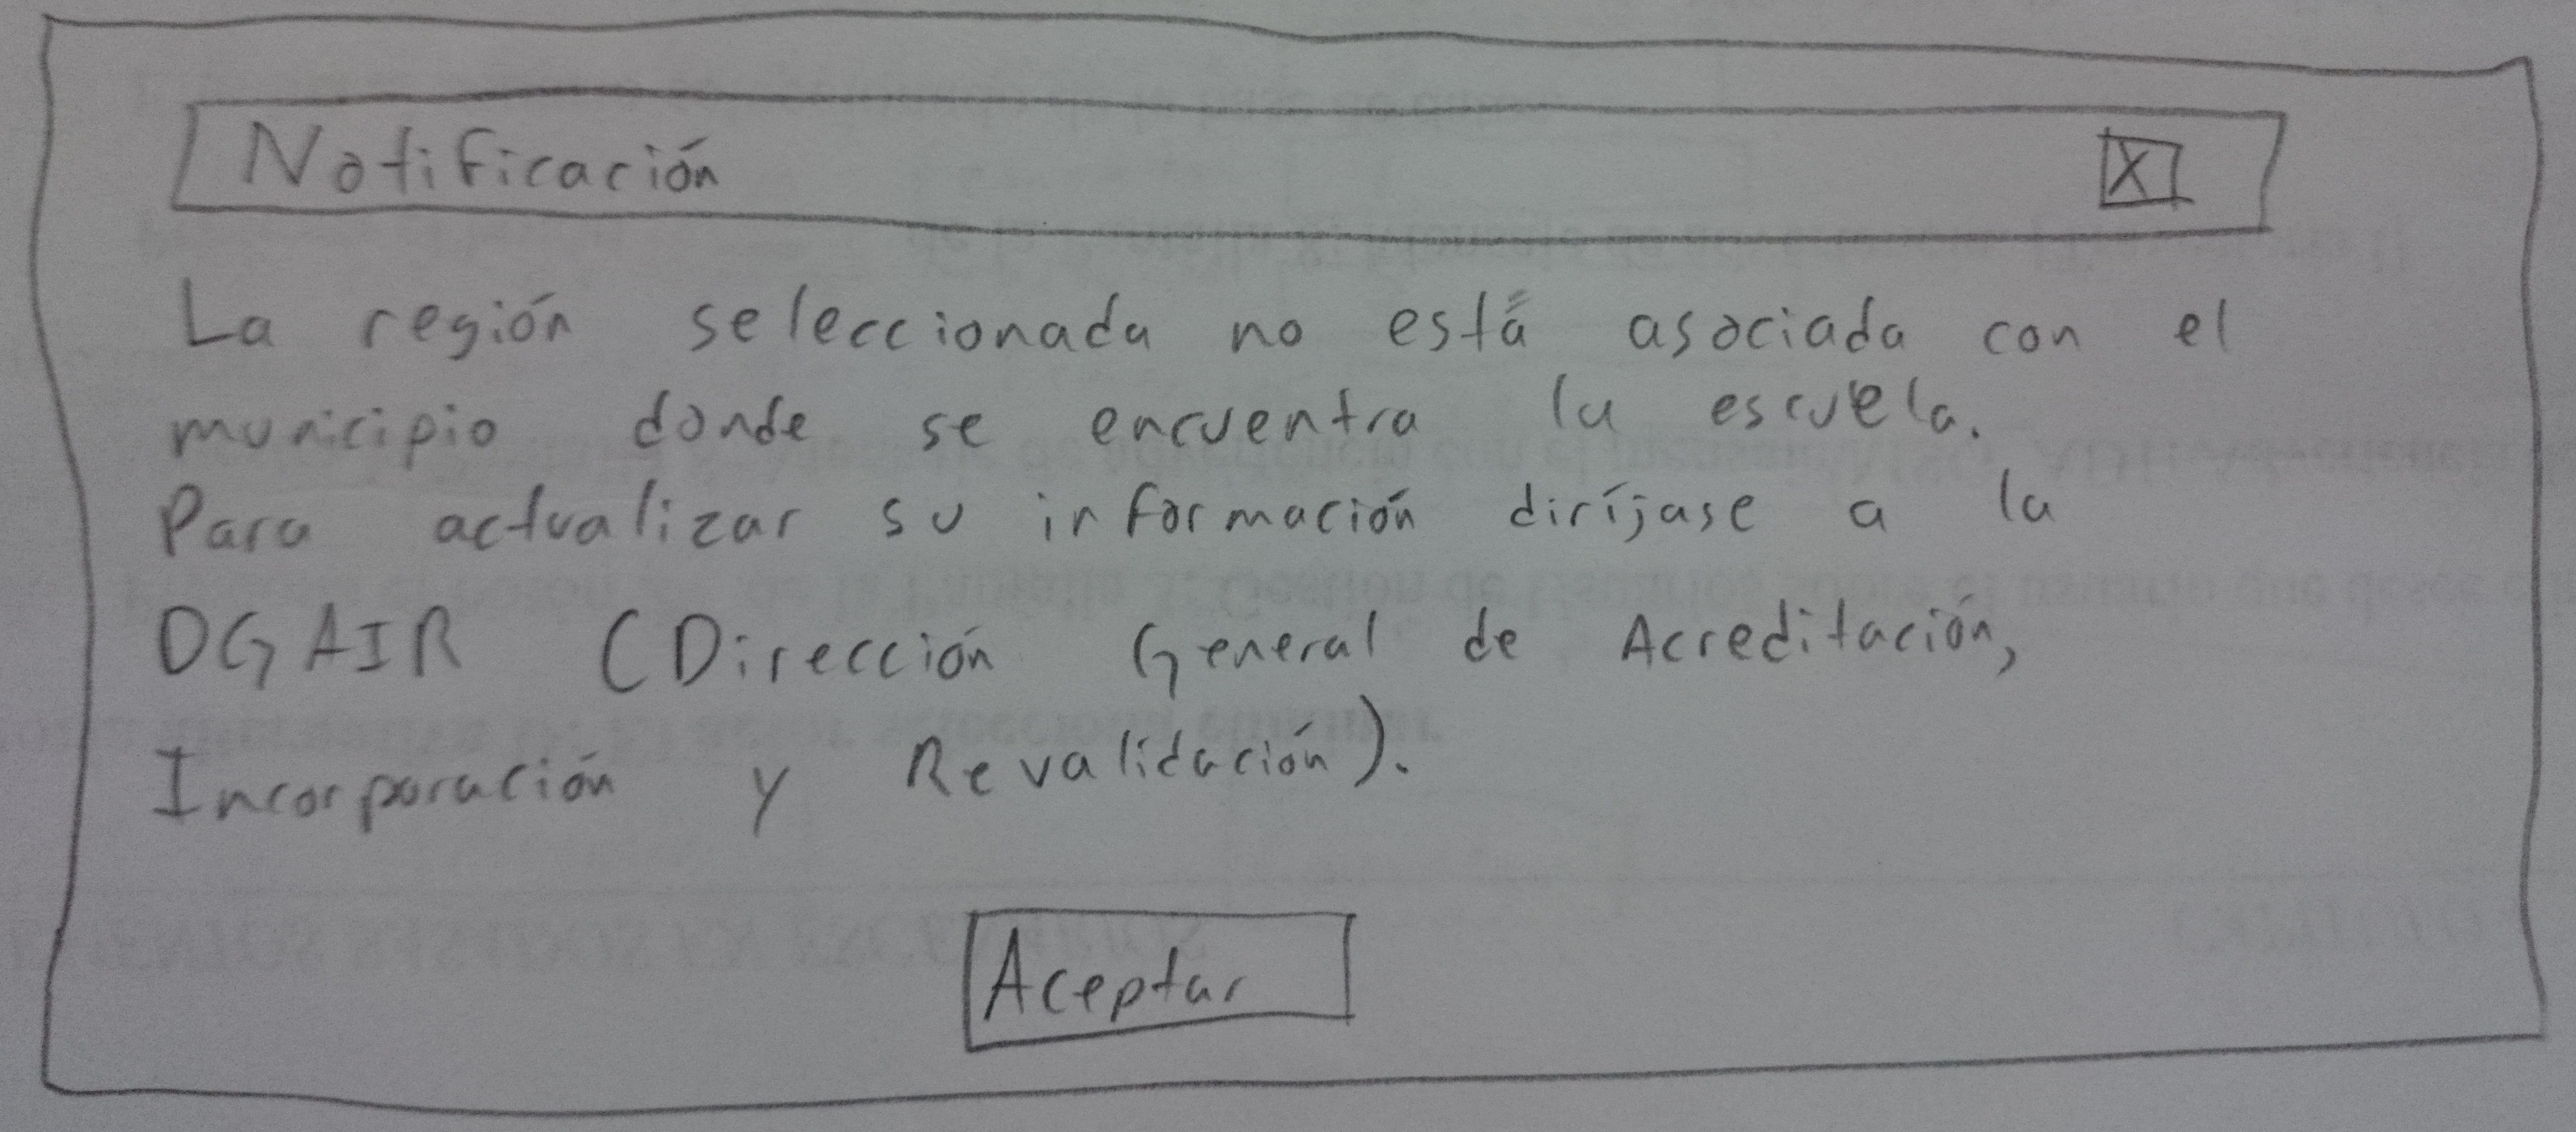 Notificación X
La región seleccionada no está asociada con el
municipio donde se encuentra la escuela.
Para actualizar su información diríjase a la
DGAIR (Dirección General de Acreditación,
Incorporación y Revalidación).
Aceptar